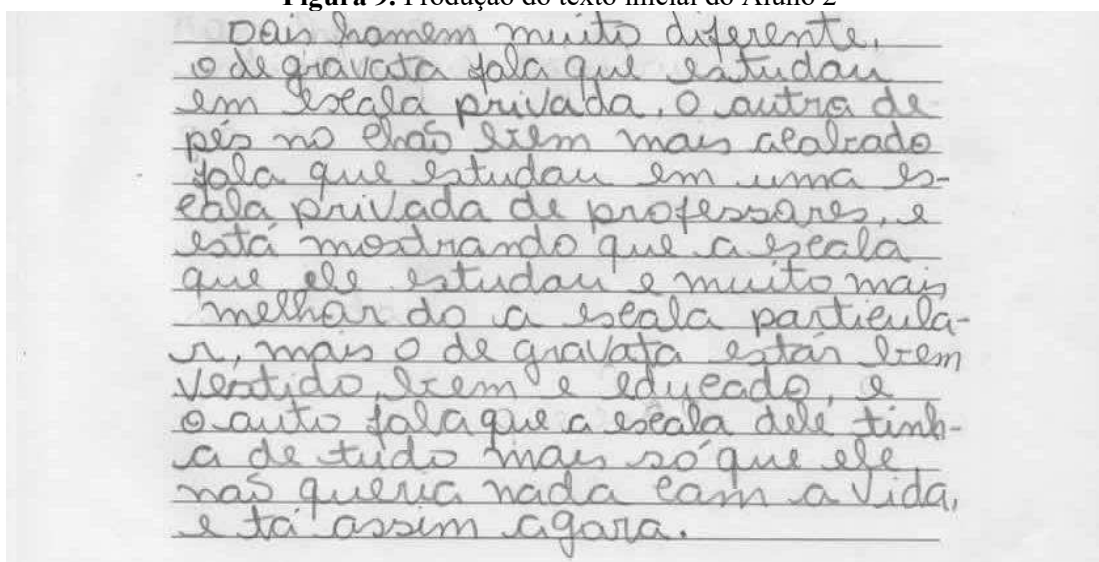 Figura 9. Produção do texto inicial do Aluno 2
Dois homem muito diferente,
o de gravata fala que estudou
em escola privada, o outro de
pés no chão bem mais acalcado
fala que estudou em uma es-
cola privada de professores, e
está mostrando que a escola
que ele estudou e muito mais
melhor do a escola particula-
r, mais o de gravata estar bem
vestido, bem e educado, e
o outo fala que a escola dele tinh-
a de tudo mais só que ele
não queria nada com a vida,
e tá assim agora.